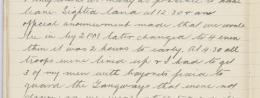 land. Sighted land at 4.300 am
official announcement made that we would
be in by 2 PM later changed to 4 even
then it was 2 hours to early. At 4.30 all
troops were lined up & I had to get
3 of my men with bayonets fixed to
guard the Gangways that were not